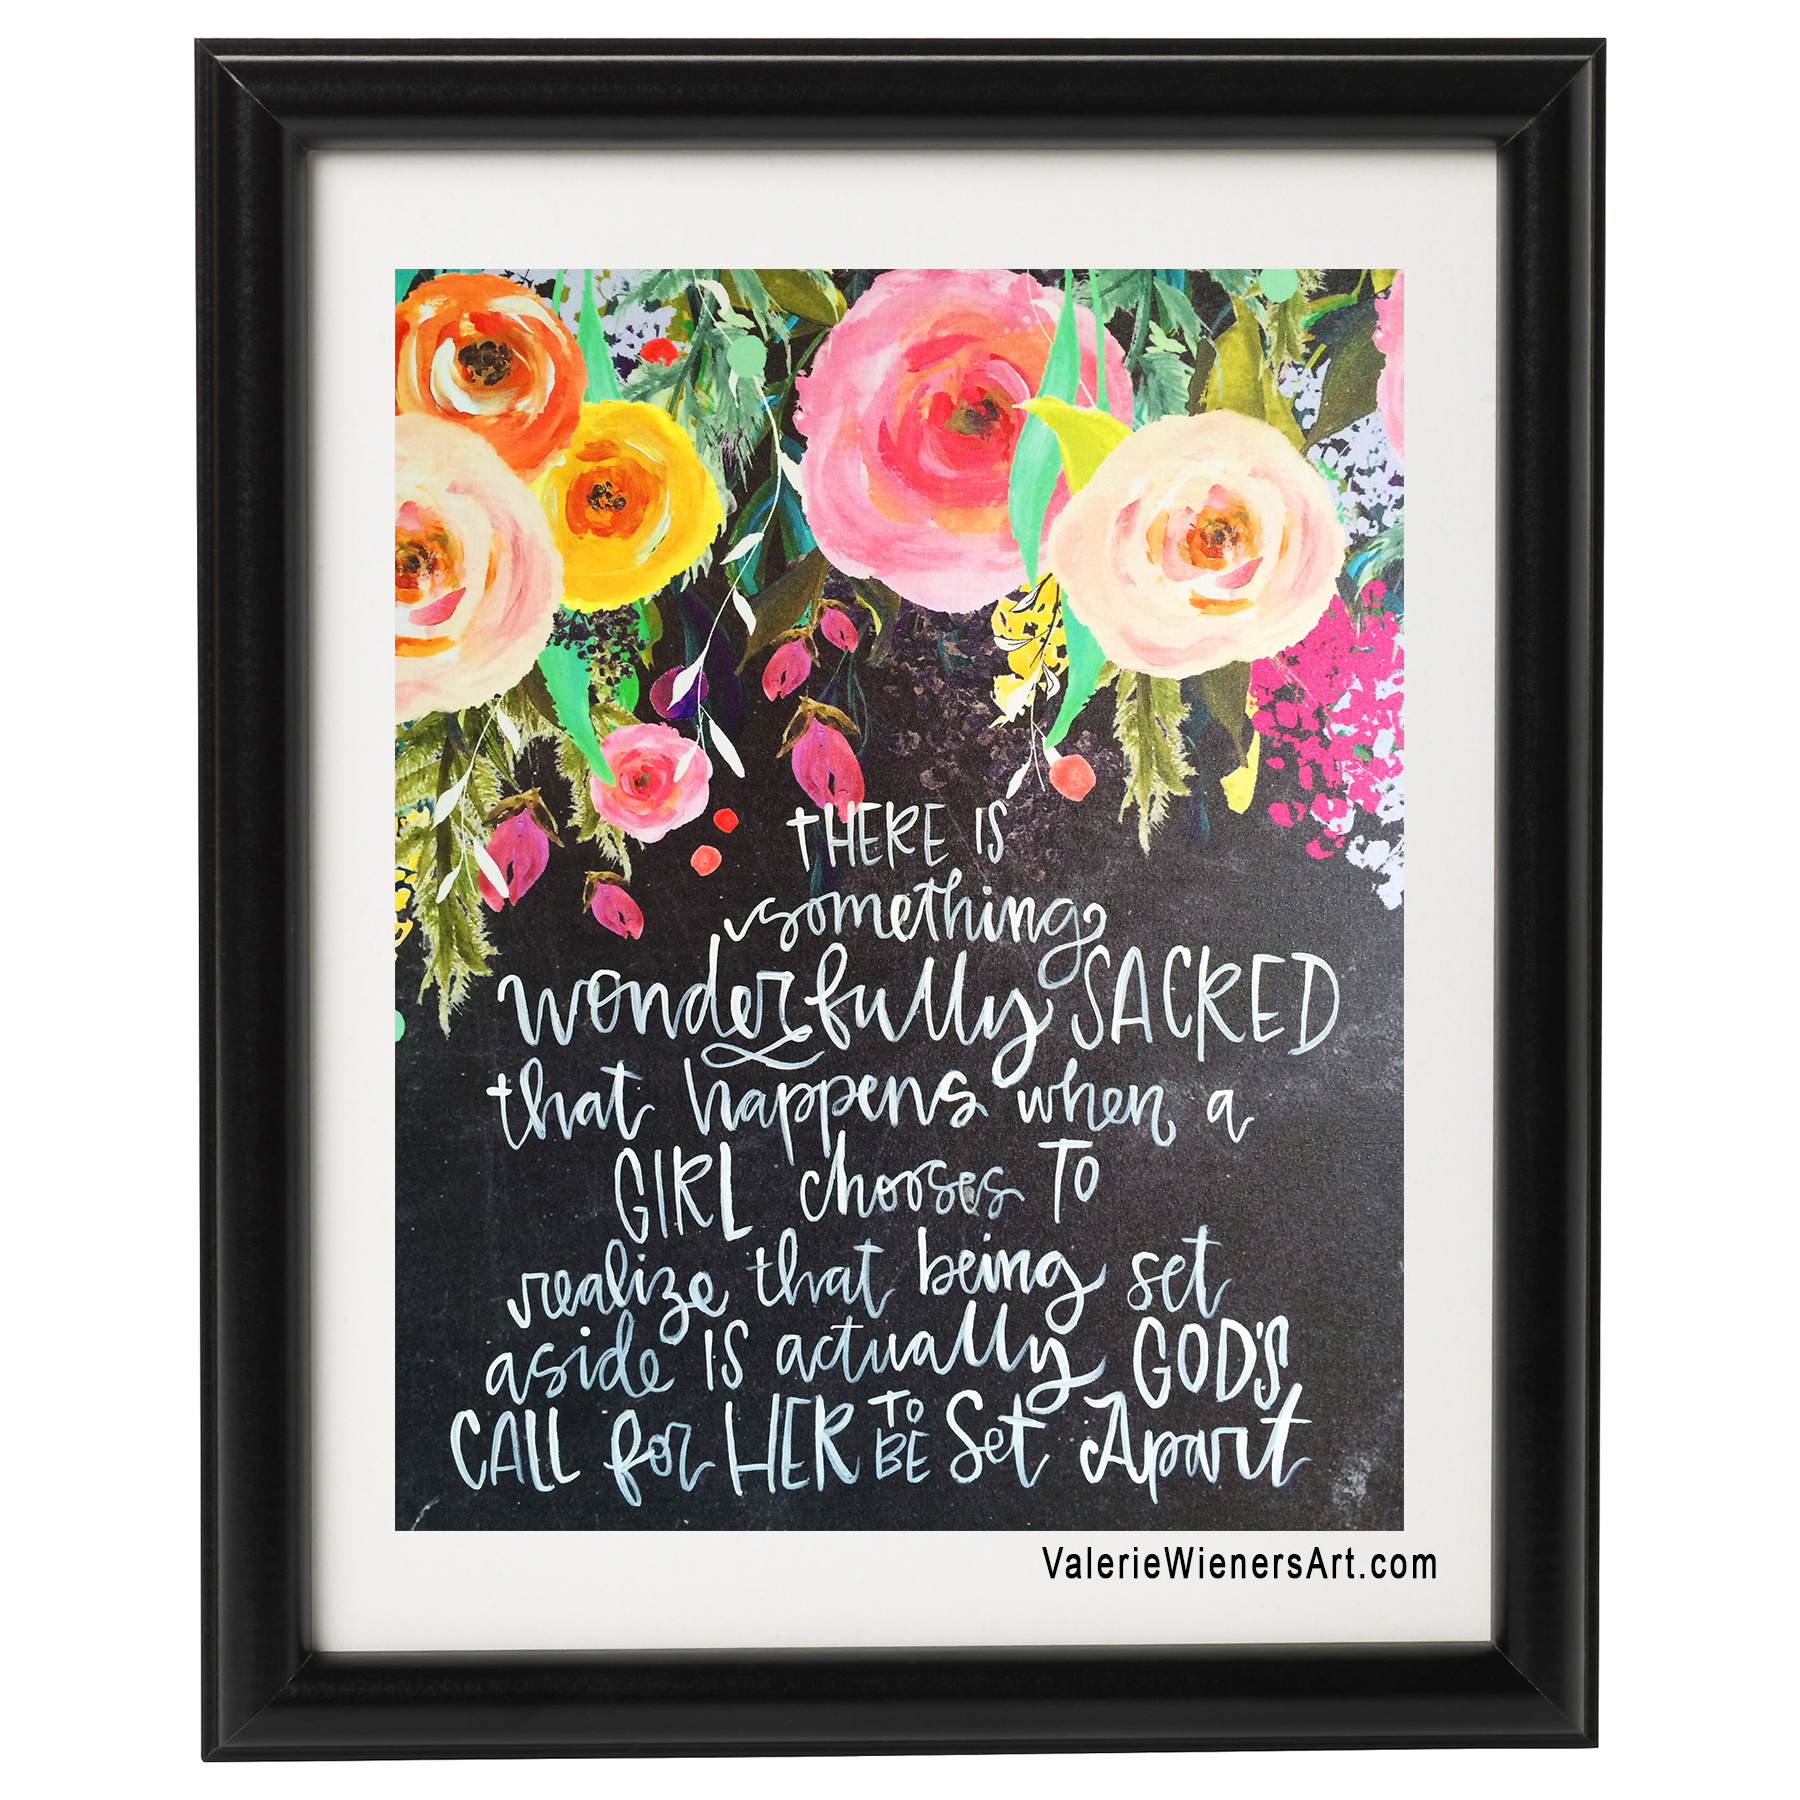 tHERE IS
something
wonderfully SACRED
that happens when a
GIRL chooses To
realize that being set
aside IS actually GOD'S
CALL for HER TO BE Set Apart
ValerieWienersArt.com